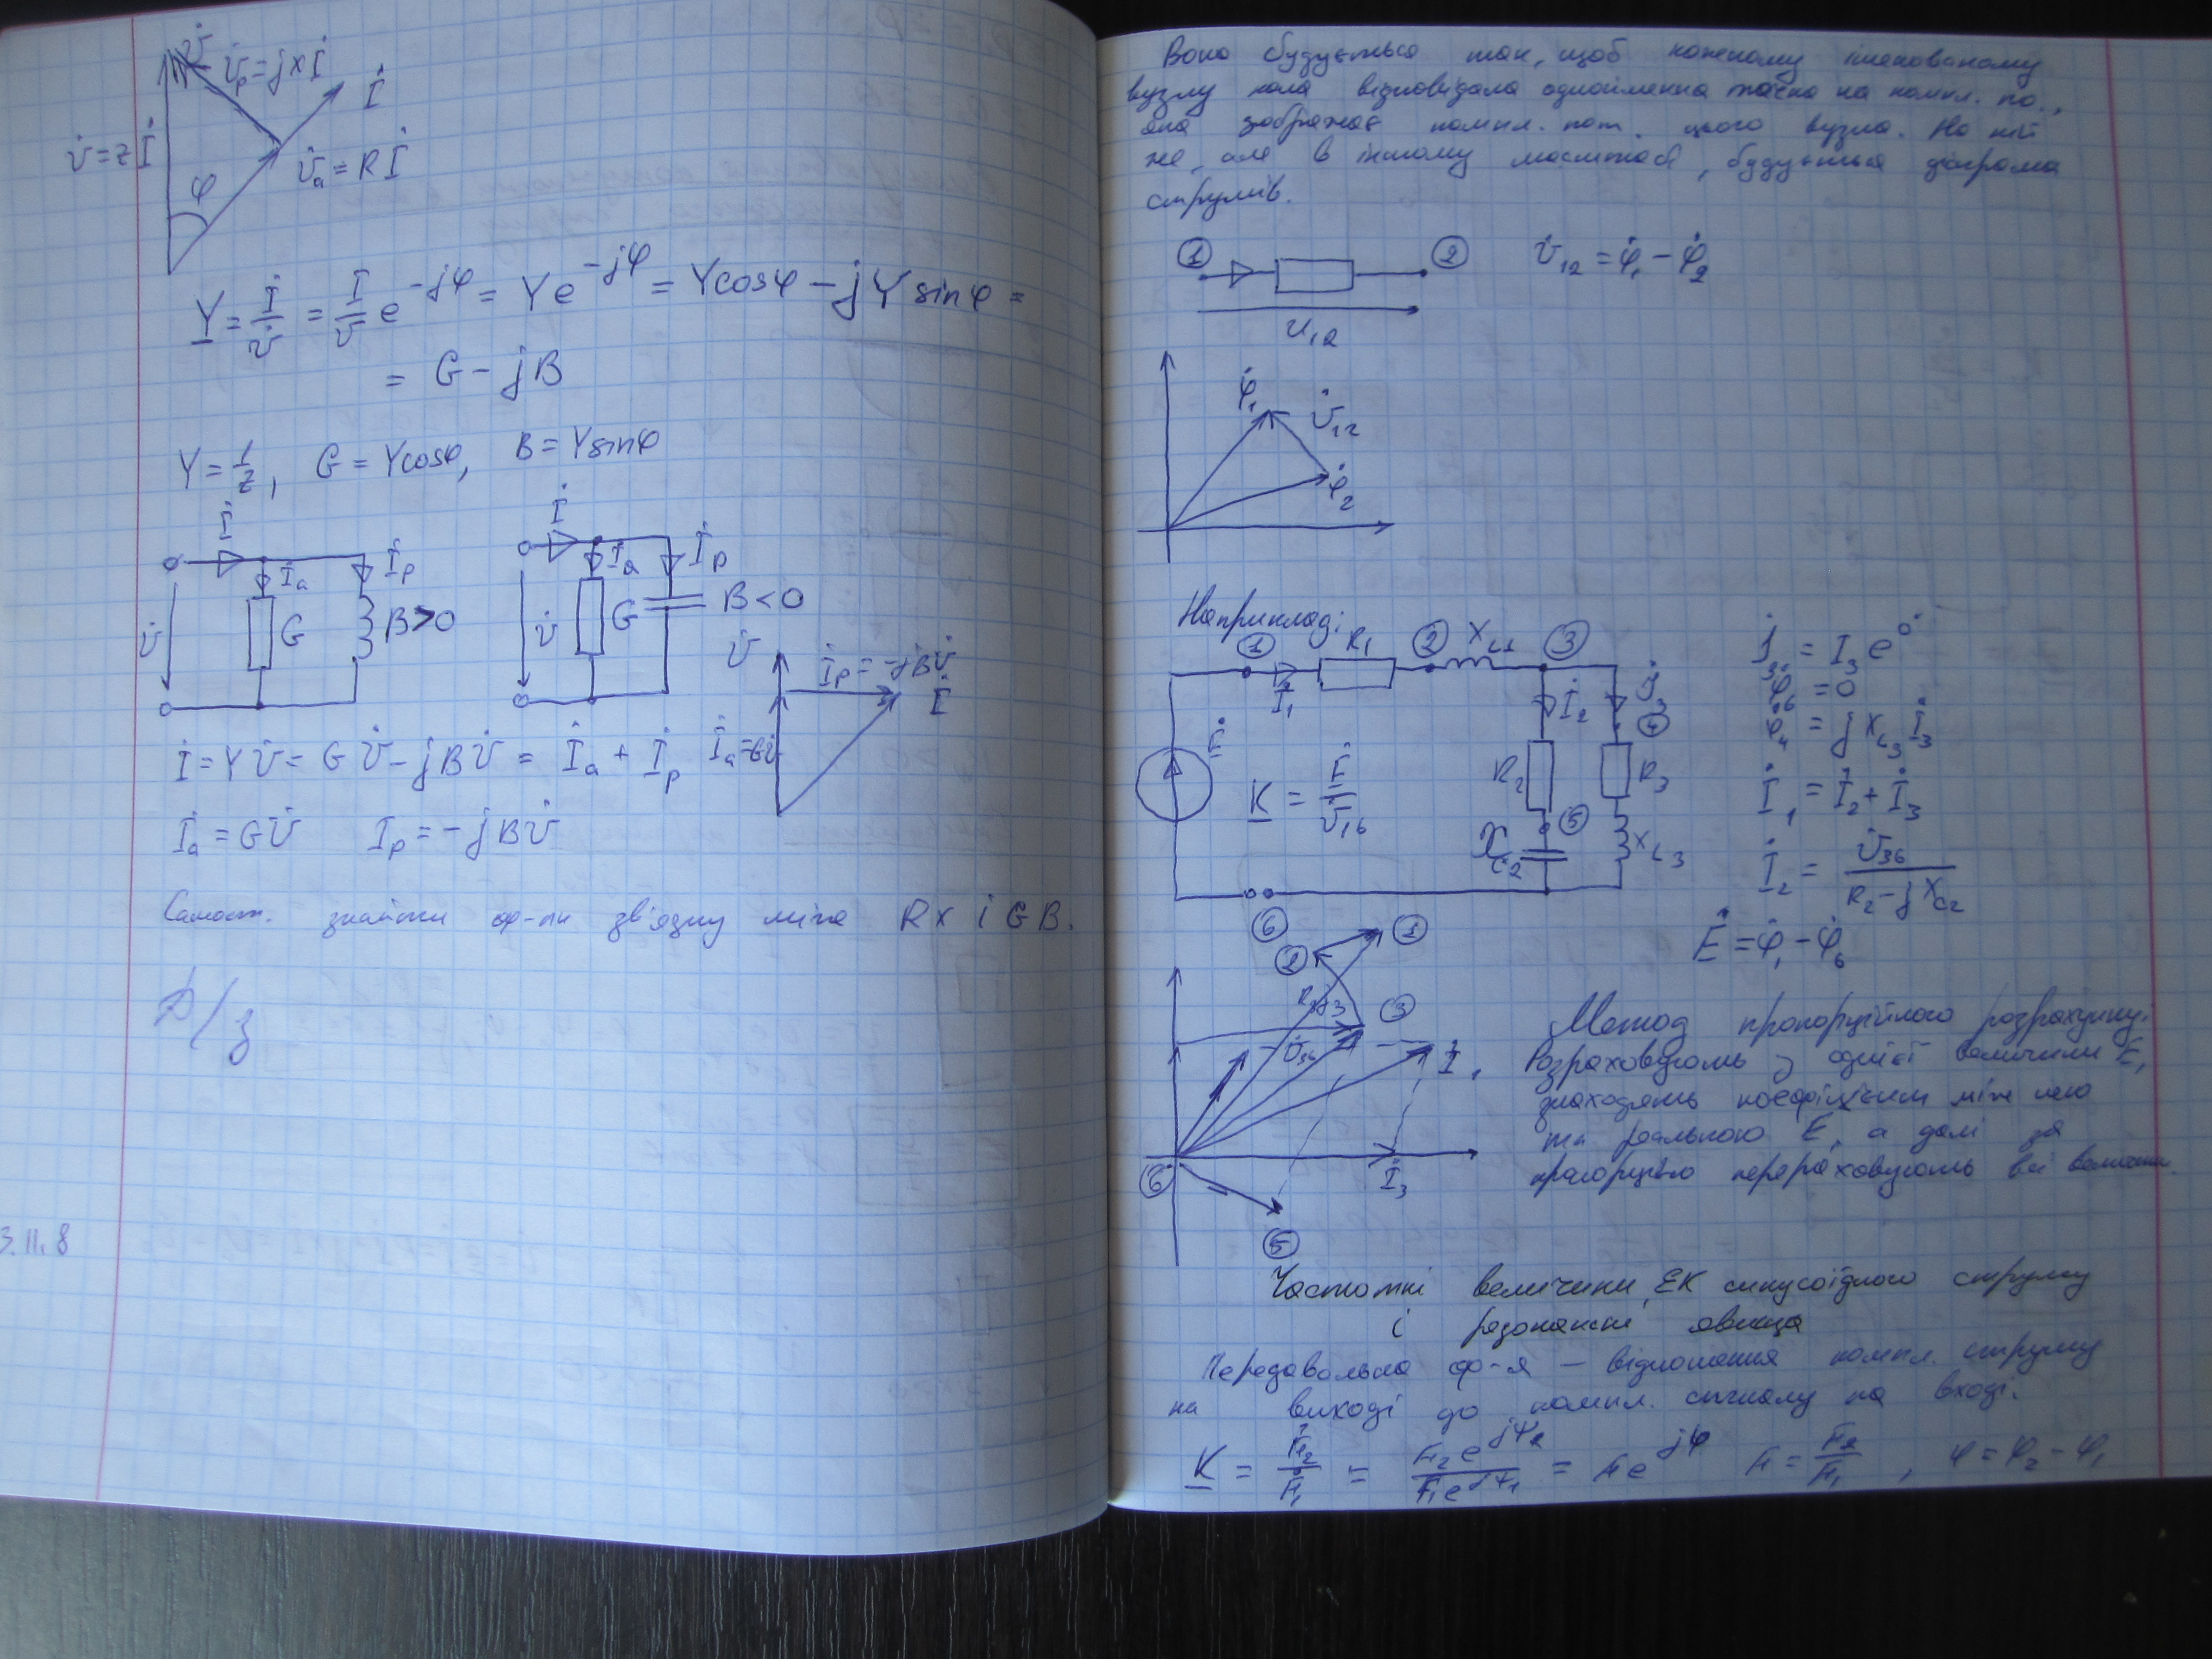 U̇
U̇р = jxİ
İ
U̇ = zİ
φ
U̇а = Rİ
Y = İ/U̇ = I/U e^(-jφ) = Y e^(-jφ) = Ycosφ - jYsinφ =
= G - jB
Y = 1/z, G = Ycosφ, B = Ysinφ
İ İа İр U̇ G B>0
İ İа İр U̇ G B<0
U̇ İр = -jBU̇ İ İа = GU̇
İ = YU̇ = GU̇ - jBU̇ = İа + İр
İа = GU̇ Iр = -jBU̇
Самост. знайти ф-ли зв'язку між Rx і GB.
Д/з
3.11.8
Вона будується так, щоб кожному
вузлу кола відповідала однойменна точка на компл. пл.,
яка зображає компл. пот. цього вузла. На ній
же, але в іншому масштабі, будується діаграма
струмів.
① ② U̇₁₂ = φ̇₁ - φ̇₂
U₁₂
φ̇₁ U̇₁₂
φ̇₂
Наприклад:
① R₁ ② XL1 ③
İ₁ İ₂ ④
Ė R₂ R₃
K = Ė/U̇₁₆
⑤ XC2 XL3
⑥
φ̇₆ = 0
φ̇₄ = jXL3 İ₃
İ₁ = İ₂ + İ₃
İ₂ = U̇₃₆/(R₂ - jXC2)
Ė = φ̇₁ - φ̇₆
② ①
③
U̇₃₆ İ₁
⑥ İ₃
⑤
Метод пропорційного розрахунку:
Розраховують з однієї величини E,
знаходять коефіцієнт між нею
та реальною E, а далі за
пропорцією перераховують всі величини.
Частотні величини ЕК синусоїдного струму
і резонансні явища
Передавальна ф-я – відношення компл. струму
на виході до компл. сигналу на вході.
K = Ḟ₂/Ḟ₁ = F₂e^(jψ₂)/F₁e^(jψ₁)